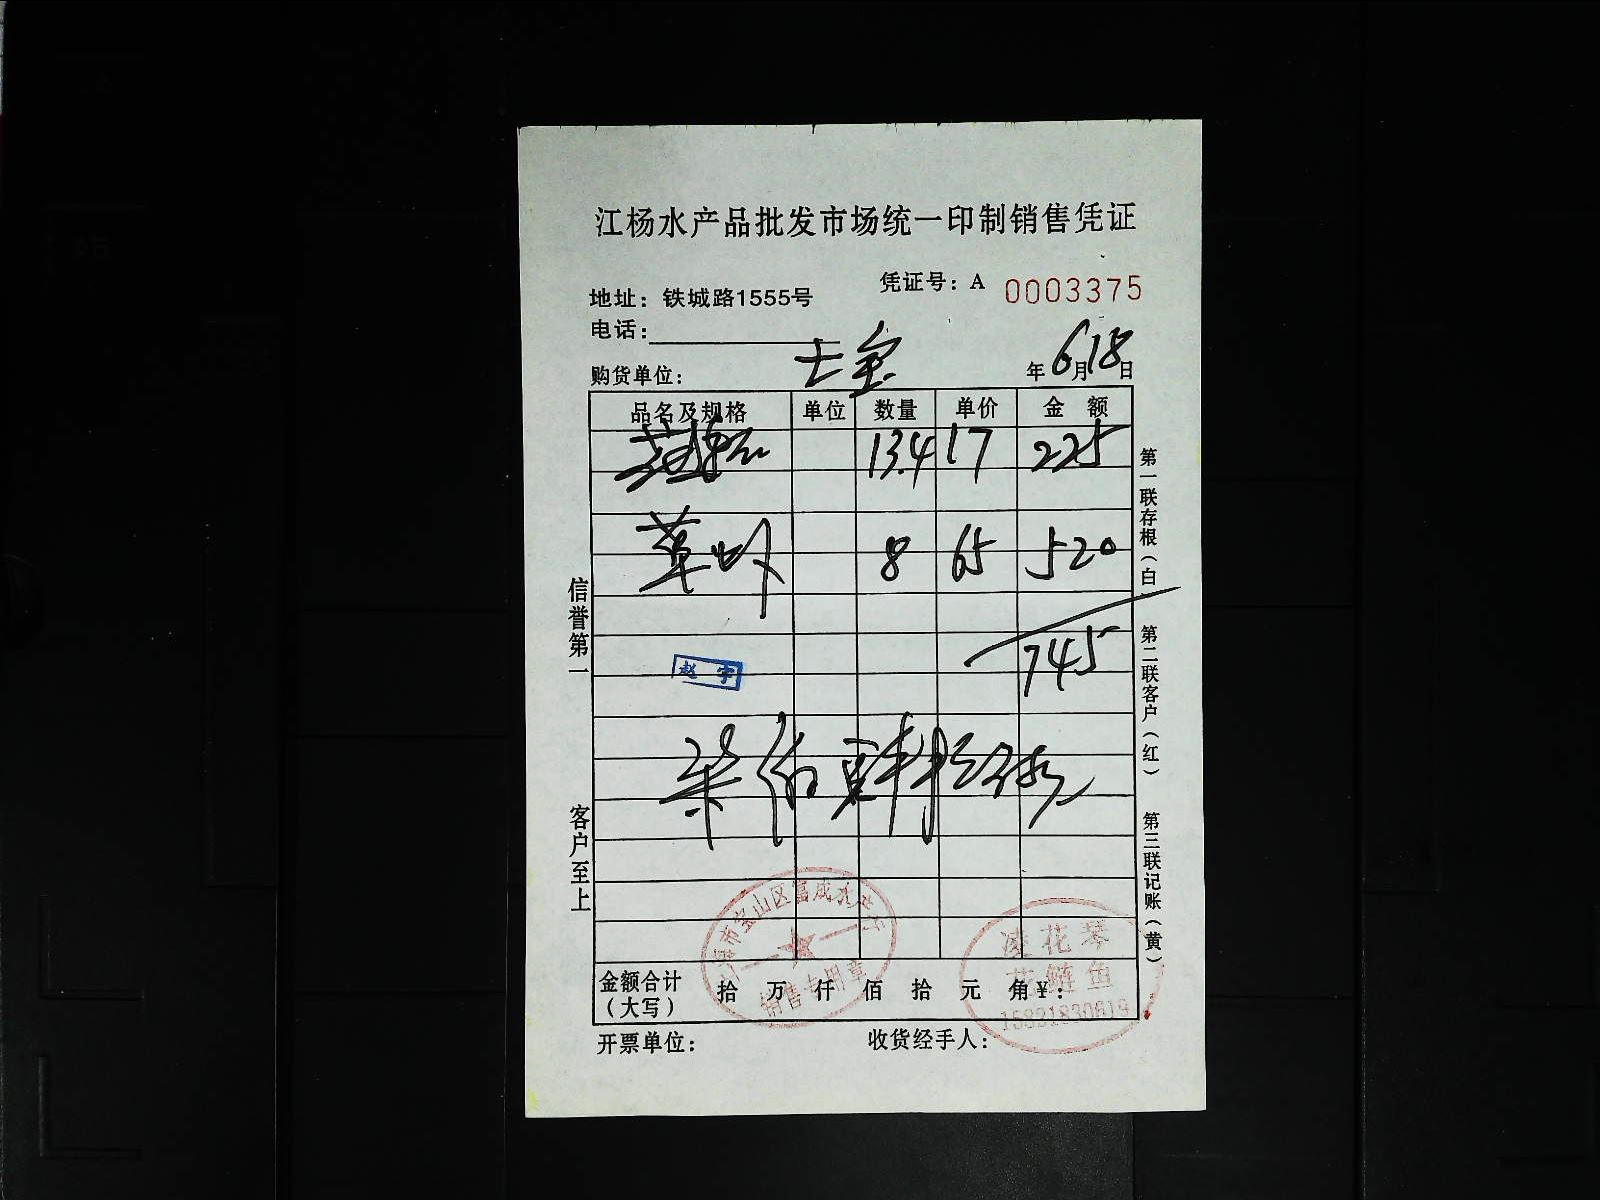 江杨水产品批发市场统一印制销售凭证
凭证号：A 0003375
地址：铁城路1555号
电话：
购货单位： 士宝 年6月18日
品名及规格 单位 数量 单价 金额
13.4 17 225
草虾 8 65 520
745
赵宇
柒佰肆拾伍
金额合计（大写） 拾 万 仟 佰 拾 元 角 ¥：
开票单位： 收货经手人：
信誉第一 客户至上
第一联存根（白） 第二联客户（红） 第三联记账（黄）
市宝山区富成
销售专用章
凌花琴
花鲢鱼